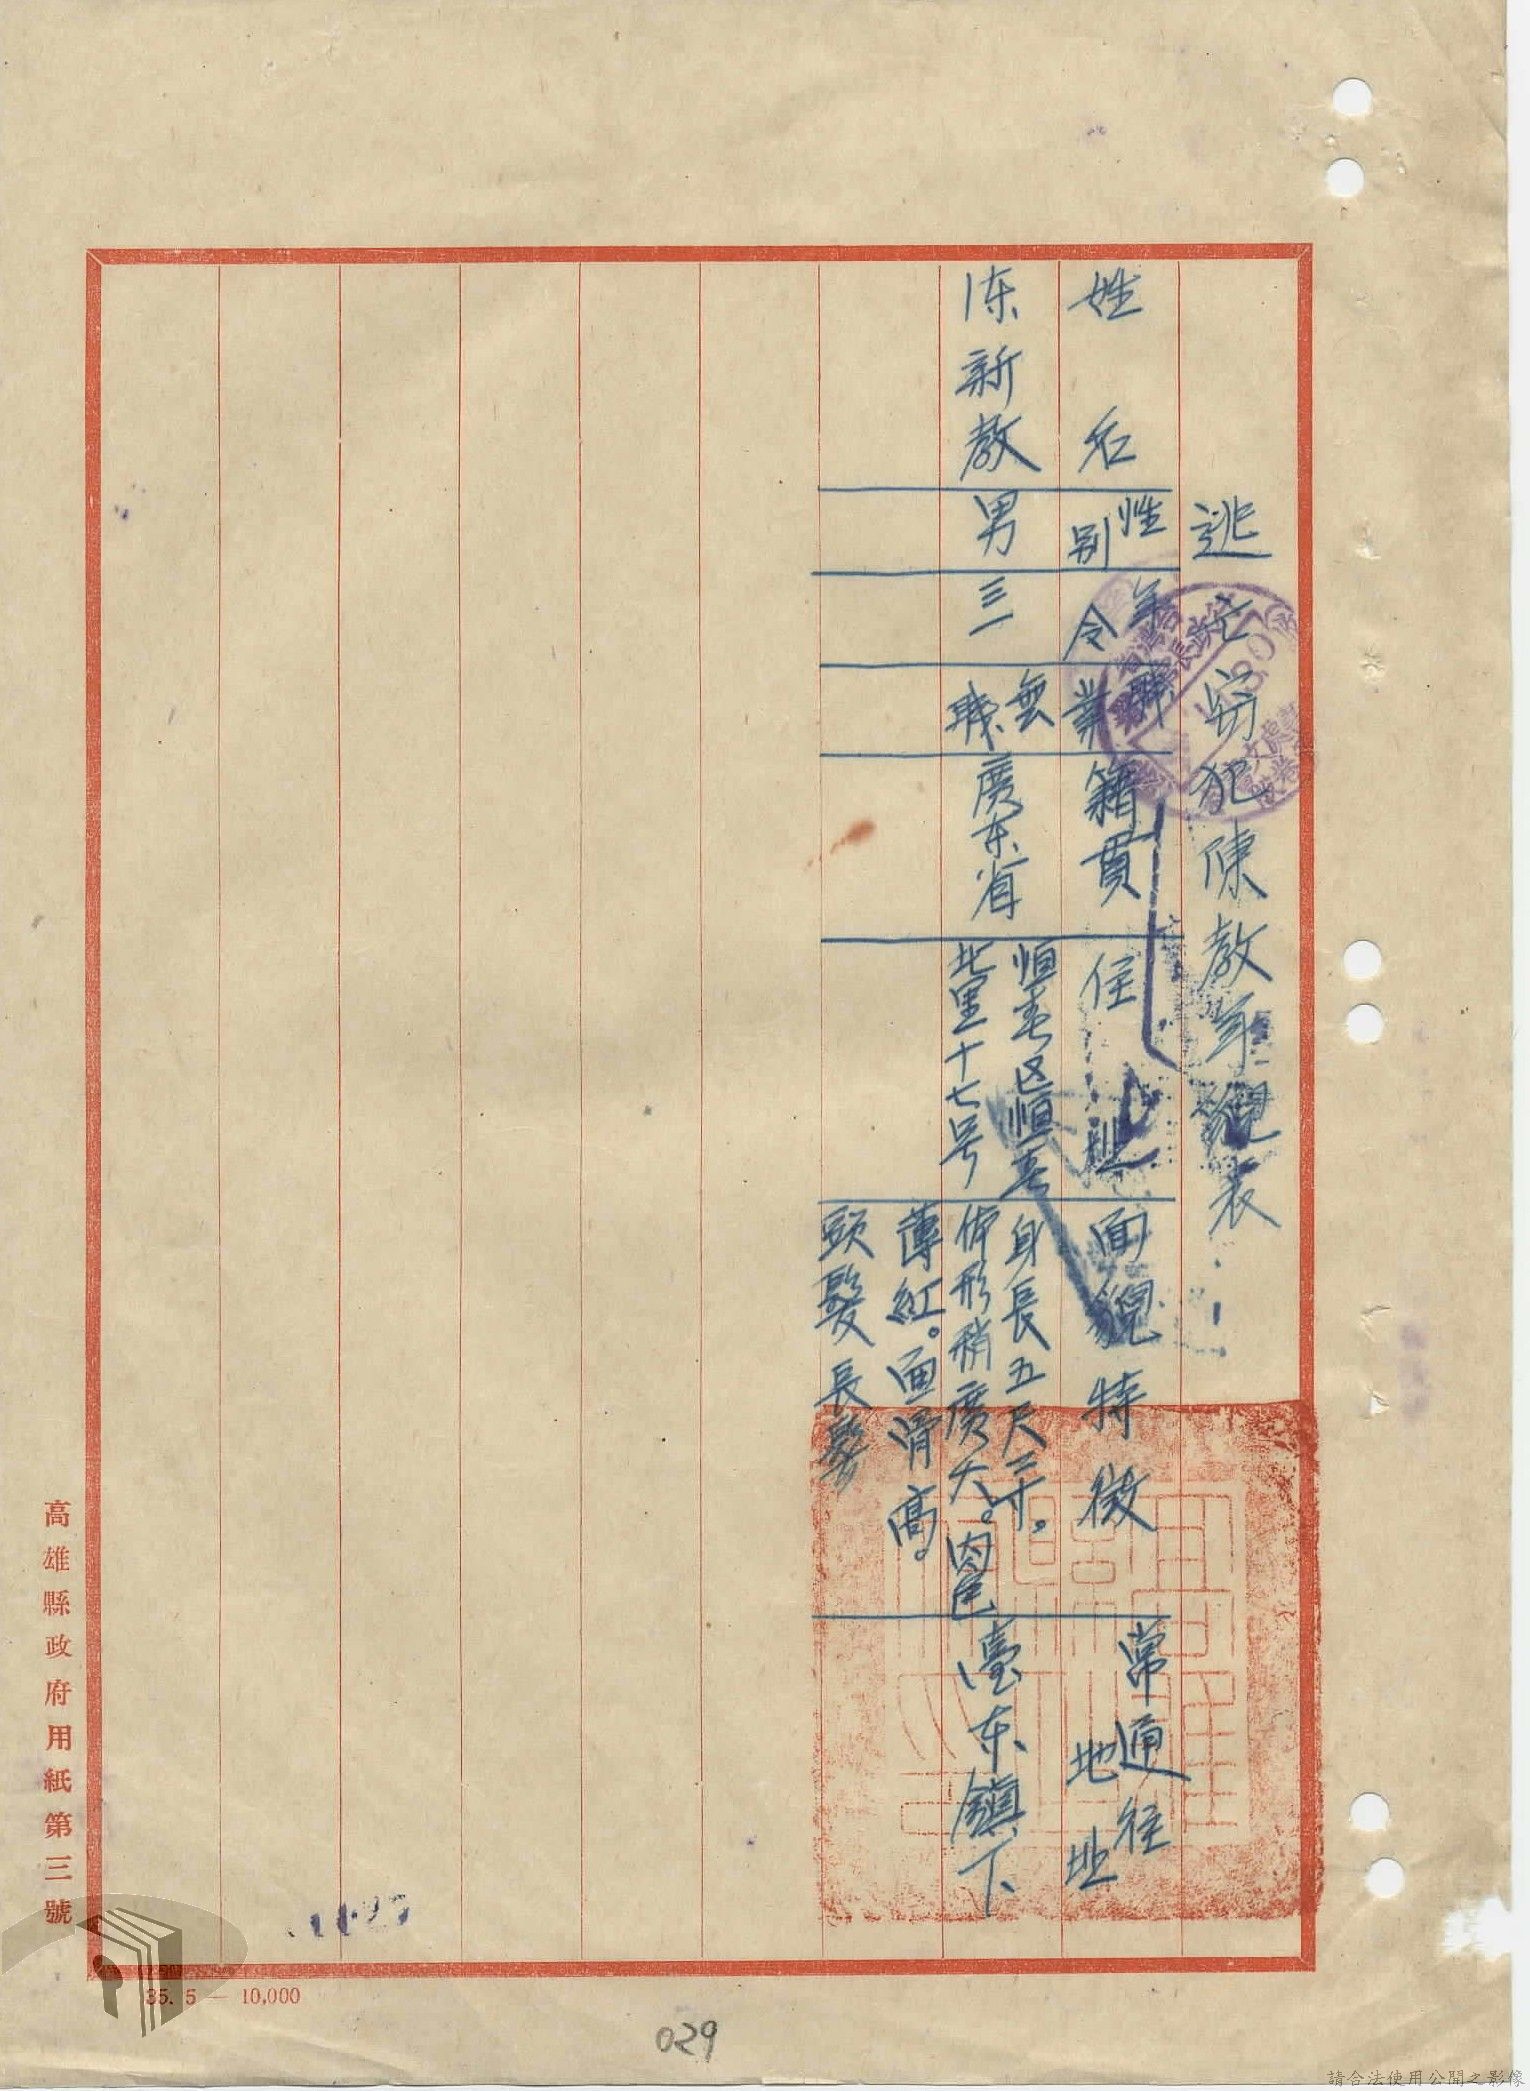 逃亡窃犯陳教年貌表
姓名
性别
年令
職業
籍貫
住址
面貌特徵
常通往地址
陈新教
男
三一
無職
廣东省
恒春区恒春北里十七号
身長五尺三寸。
体形稍廣大。肉色
薄紅。面骨高。
頭髮長髮
臺东鎮下
高雄縣政府用紙第三號
35. 5 — 10,000
029
請合法使用公開之影像